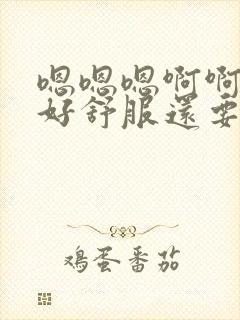 嗯嗯嗯啊啊
好舒服還要
鸡蛋番茄